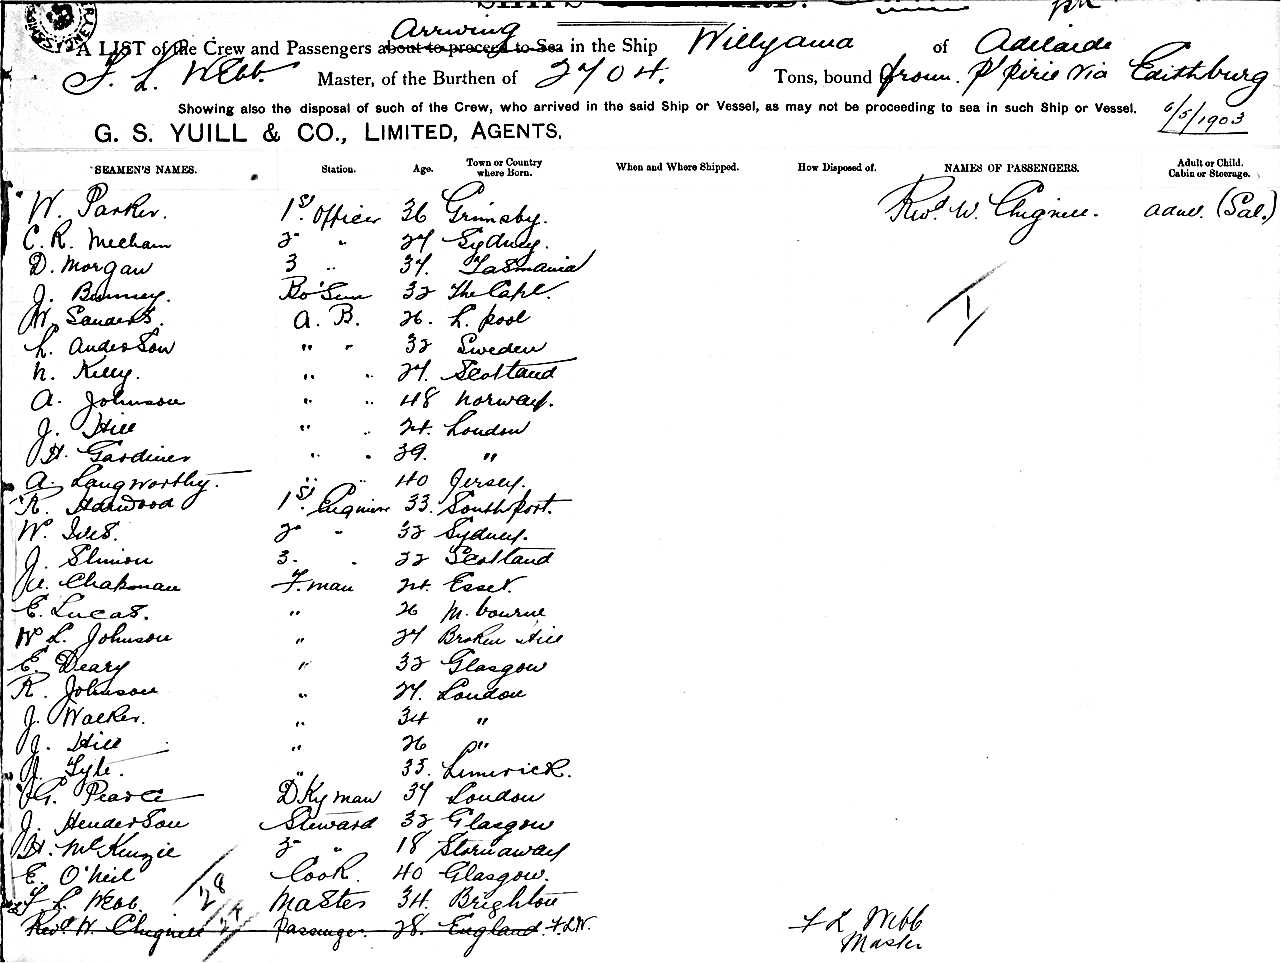 A LIST of the Crew and Passengers about to proceed to Sea Arriving in the Ship Willyama of Adelaide
F. L. Webb Master, of the Burthen of 2704. Tons, bound from. P' Pirie via Edithburg
Showing also the disposal of such of the Crew, who arrived in the said Ship or Vessel, as may not be proceeding to sea in such Ship or Vessel. 6/5/1903
G. S. YUILL & CO., LIMITED, AGENTS.
SEAMEN'S NAMES. Station. Age. Town or Country where Born. When and Where Shipped. How Disposed of. NAMES OF PASSENGERS. Adult or Child. Cabin or Steerage.
W. Parker. 1st. Officer 36 Grimsby. Revd. W. Chignell. (Sal.)
C. R. Mecham 2d " 27 Sydney.
D. Morgan 3 " 37. Tasmania
J. Bo'Sun 32 The Cape.
W. Sanders. A. B. 26. L. pool
L. Anderson " " 32 Sweden
N. Kelly. " " 27. Scotland
A. Johnson " " 48 Norway.
J. Hill " " 24. London
H. Gardiner " " 39. "
A. Langworthy. " " 40 Jersey.
R. Harwood 1st. Engineer 33. Southport.
W. Ives. 2d " 32 Sydney.
J. Slimon 3. " 22 Scotland
Chapman F. man 24. Essex.
E. Lucas. " 26 M. bourne
W. L. Johnson " 27 Broken Hill
E. Deary " 32 Glasgow
R. Johnson " 27. London
J. Walker. " 34 "
J. Hill " 26 "
Lyle. " 35. Limerick.
G. Pearce DKyman 37 London
J. Henderson Steward 32 Glasgow
H. McKenzie 2d " 18 Stornaway
E. O'Neil Cook. 40 Glasgow.
F. L. Webb. Master 34. Brighton
Revd. W. Chignell Passenger. 28. England. F.L.W.
F L Webb
Master